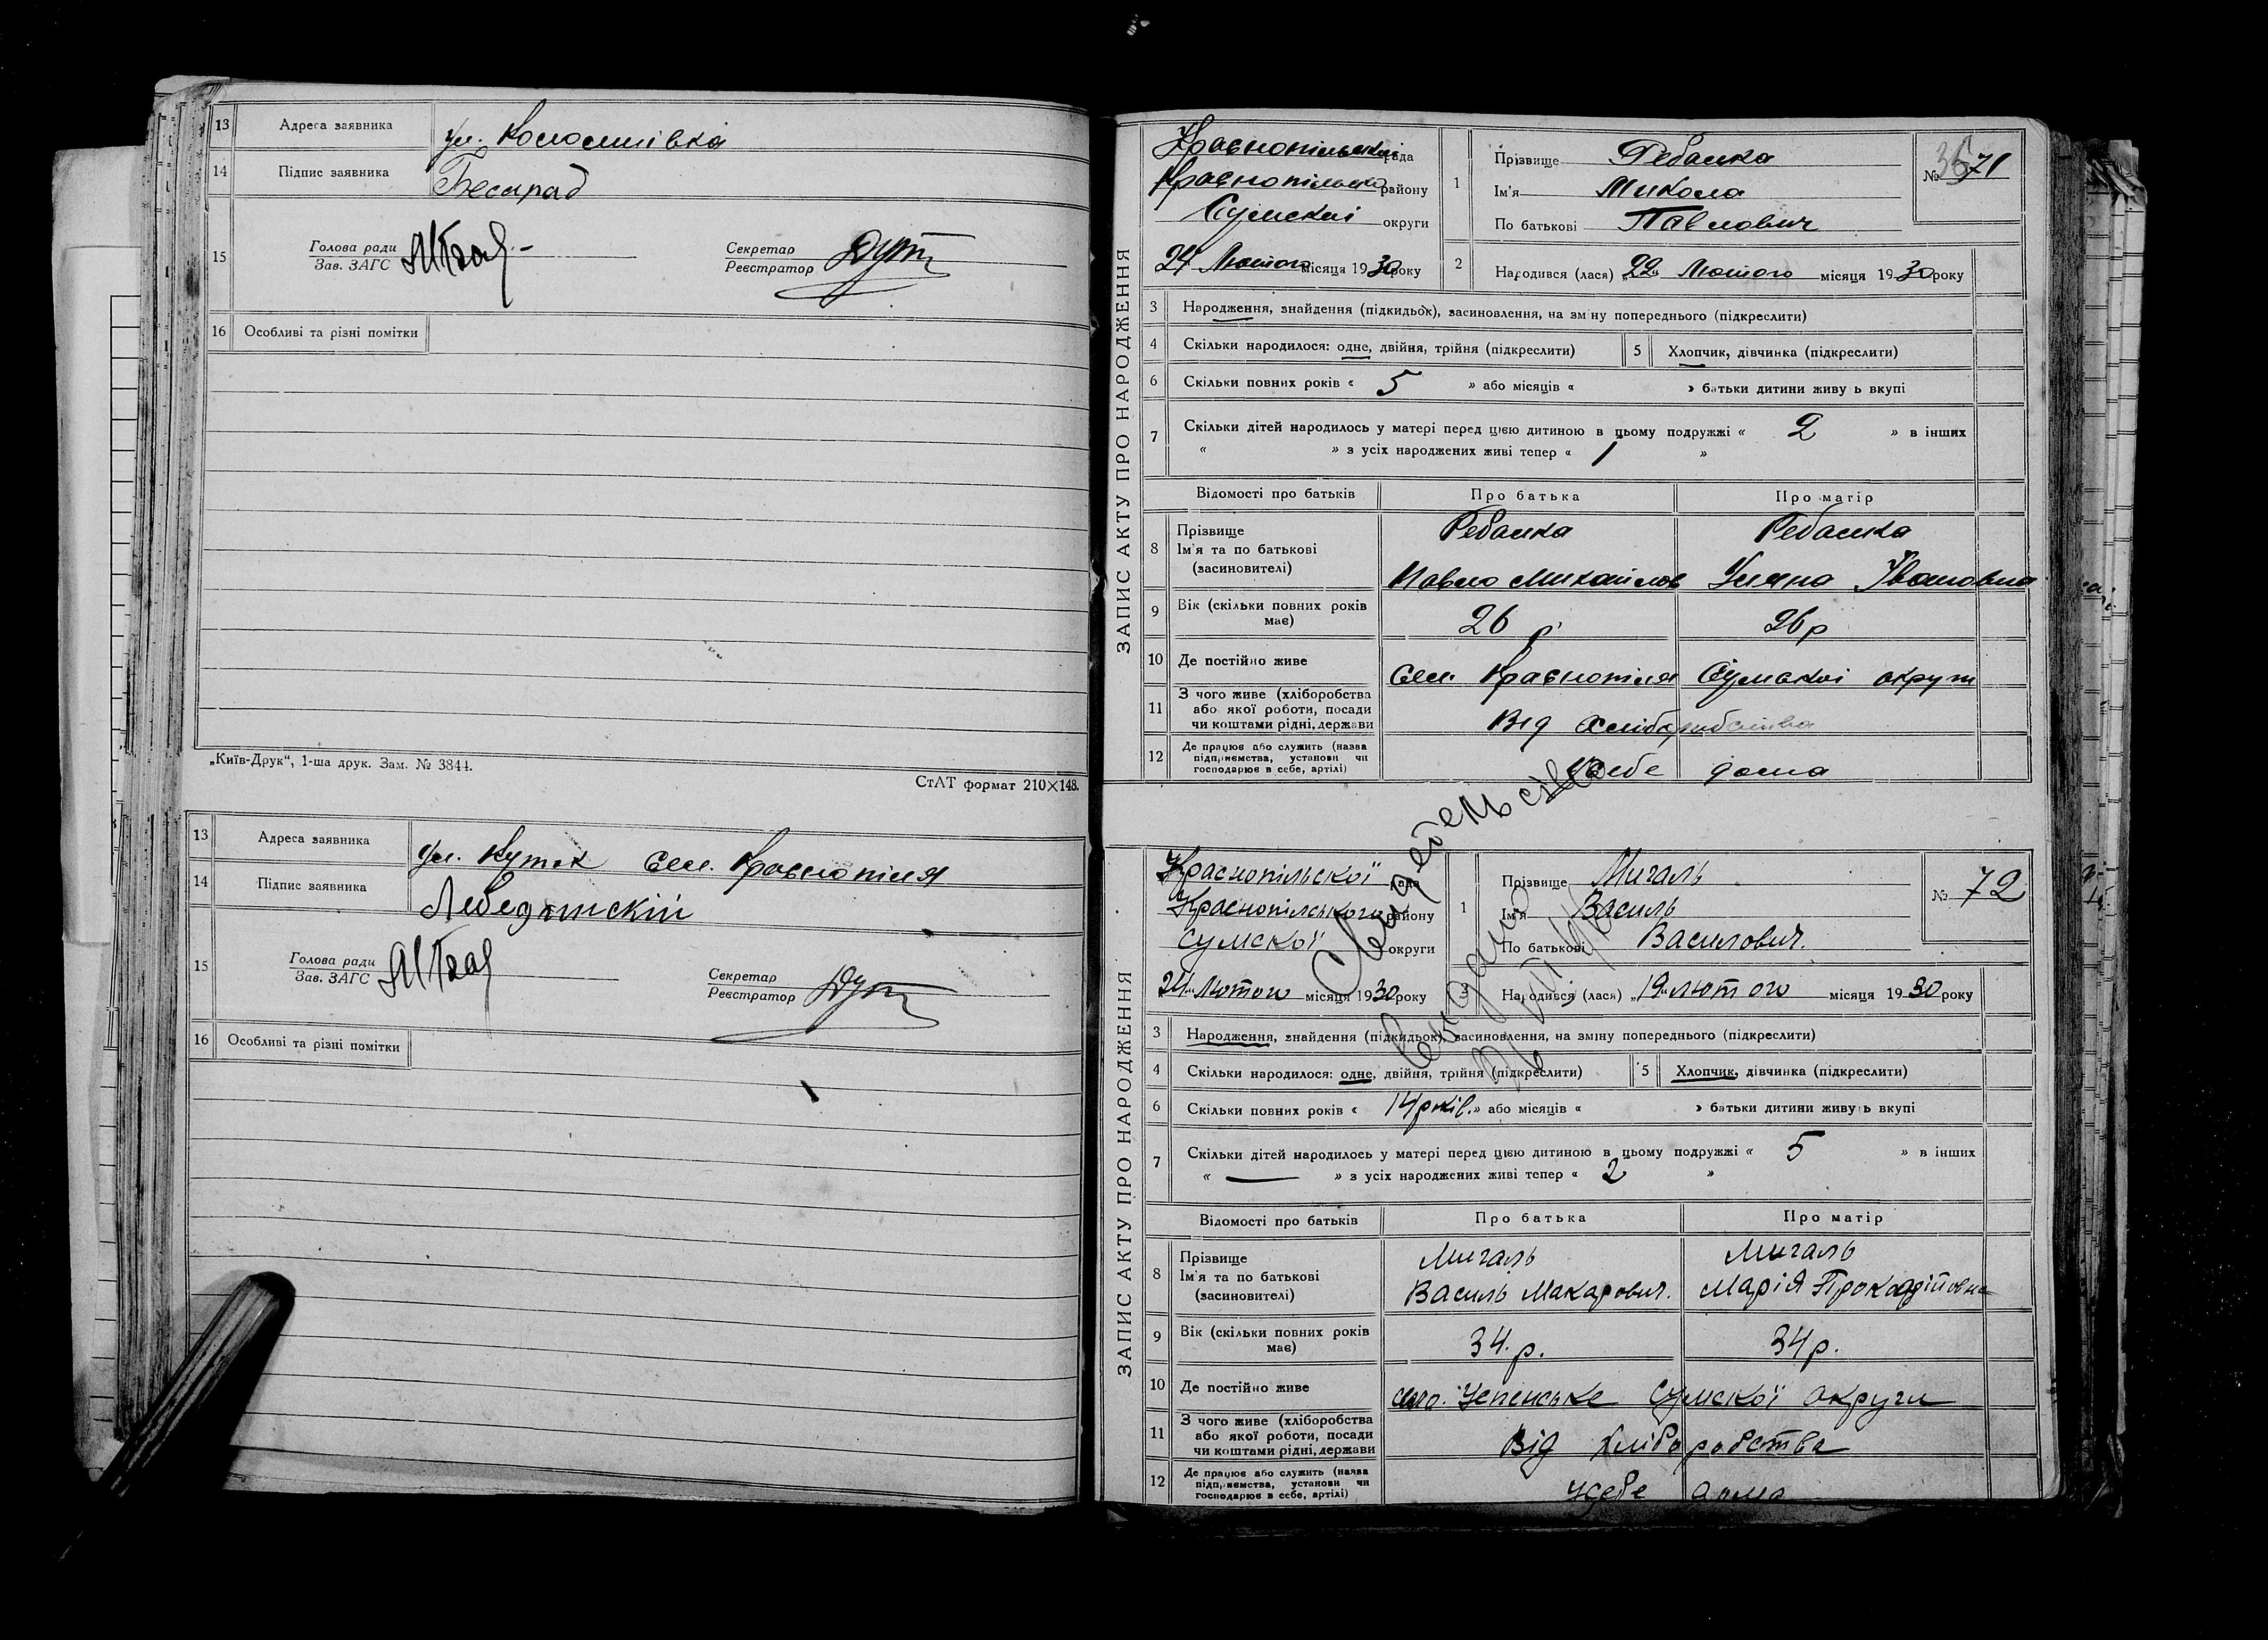 13 Адреса заявника ул.
14 Підпис заявника
15 Голова ради
Зав. ЗАГС
Секретар
Реєстратор
16 Особливі та різні помітки
„Київ-Друк“, 1-ша друк. Зам. № 3844.
СтАТ формат 210×148.
13 Адреса заявника ул. Куток Сел. Краснопілля
14 Підпис заявника Лебединский
15 Голова ради
Зав. ЗАГС
Секретар
Реєстратор
16 Особливі та різні помітки
ЗАПИС АКТУ ПРО НАРОДЖЕННЯ
Краснопільської рада
Краснопільсько району
Сумскої округи
24 Лютого місяця 1930 року
1 Прізвище Ребалка
Ім'я Микола
По батькові Павлович
№ 71
2 Народився (лася) „22“ Лютого місяця 1930 року
3 Народження, знайдення (підкидьок), засиновлення, на зміну попереднього (підкреслити)
4 Скільки народилося: одне, двійня, трійня (підкреслити)
5 Хлопчик, дівчинка (підкреслити)
6 Скільки повних років « 5 » або місяців « » батьки дитини живуть вкупі
7 Скільки дітей народилось у матері перед цією дитиною в цьому подружжі « 2 » в інших
« » з усіх народжених живі тепер « 1 »
Відомості про батьків Про батька Про матір
8 Прізвище
Ім'я та по батькові
(засиновителі)
Ребалка
Павло Михайлов
Ребалка
Уляна Івановна
9 Вік (скільки повних років має) 26 р 26 р
10 Де постійно живе Сел. Краснопілля Сумської округи
11 З чого живе (хліборобства
або якої роботи, посади
чи коштами рідні, держави
Від хліборобства
12 Де працює або служить (назва
підприємства, установи чи
господарює в себе, артілі)
у себе дома
Свидетельство
выдано
ЗАПИС АКТУ ПРО НАРОДЖЕННЯ
Краснопільскої рада
Краснопілського району
Сумскої округи
24 Лютого місяця 1930 року
1 Прізвище Мигаль
Ім'я Василь
По батькові Василович.
№ 72
2 Народився (лася) „19“ лютого місяця 1930 року
3 Народження, знайдення (підкидьок), засиновлення, на зміну попереднього (підкреслити)
4 Скільки народилося: одне, двійня, трійня (підкреслити)
5 Хлопчик, дівчинка (підкреслити)
6 Скільки повних років « 14 років. » або місяців « » батьки дитини живуть вкупі
7 Скільки дітей народилось у матері перед цією дитиною в цьому подружжі « 5 » в інших
« — » з усіх народжених живі тепер « 2 »
Відомості про батьків Про батька Про матір
8 Прізвище
Ім'я та по батькові
(засиновителі)
Мигаль
Василь Макарович.
Мигаль
Марія
9 Вік (скільки повних років має) 34. р. 34 р.
10 Де постійно живе село. Успенське Сумскої округи
11 З чого живе (хліборобства
або якої роботи, посади
чи коштами рідні, держави
Від хліборобства
12 Де працює або служить (назва
підприємства, установи чи
господарює в себе, артілі)
усебе дома